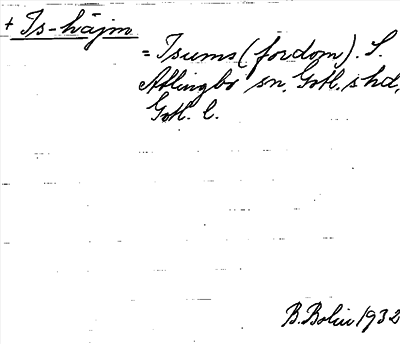 + Is-häjm
= Isums (fordom). S.
Atlingbo sn, Gotl. s hd,
Gotl. l.
B. Bolin 1932